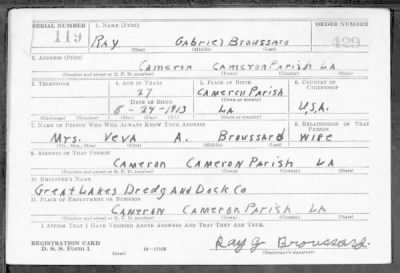 SERIAL NUMBER 1. NAME (Print) ORDER NUMBER
119 RAY Gabriel Broussard 429
(First) (Middle) (Last)
2. ADDRESS (Print)
Cameron Cameron Parish LA
(Number and street or R. F. D. number) (Town) (County) (State)
3. TELEPHONE 4. AGE IN YEARS 5. PLACE OF BIRTH 6. COUNTRY OF CITIZENSHIP
27 Cameron Parish
DATE OF BIRTH (Town or county)
8-24-1913 LA U.S.A.
(Exchange) (Number) (Mo.) (Day) (Yr.) (State or country)
7. NAME OF PERSON WHO WILL ALWAYS KNOW YOUR ADDRESS 8. RELATIONSHIP OF THAT PERSON
Mrs. Veva A. Broussard Wife
(Mr., Mrs., Miss) (First) (Middle) (Last)
9. ADDRESS OF THAT PERSON
Cameron Cameron Parish LA
(Number and street or R. F. D. number) (Town) (County) (State)
10. EMPLOYER'S NAME
Great Lakes Dredg And Dock Co
11. PLACE OF EMPLOYMENT OR BUSINESS
Cameron Cameron Parish LA
(Number and street or R. F. D. number) (Town) (County) (State)
I AFFIRM THAT I HAVE VERIFIED ABOVE ANSWERS AND THAT THEY ARE TRUE.
REGISTRATION CARD
D. S. S. Form 1 (over) Ray G Broussard
(Registrant's signature)